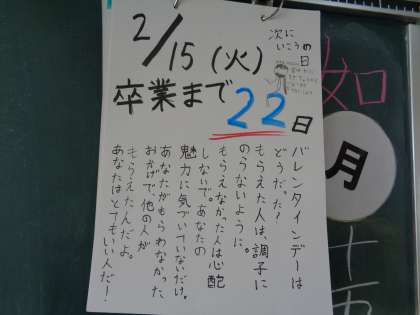 2/15(火)
次に
いこうの
日
卒業まで
22日
バレンタインデーは
どうだった?
もらえた人は、調子に
のらないように。
もらえなかった人は心配
しないで。あなたの
魅力に気づいていないだけ。
あなたがもらわなかった
おかげで、他の人が
もらえたんだよ。
あなたはとてもいい人だ!
如
月
十
五